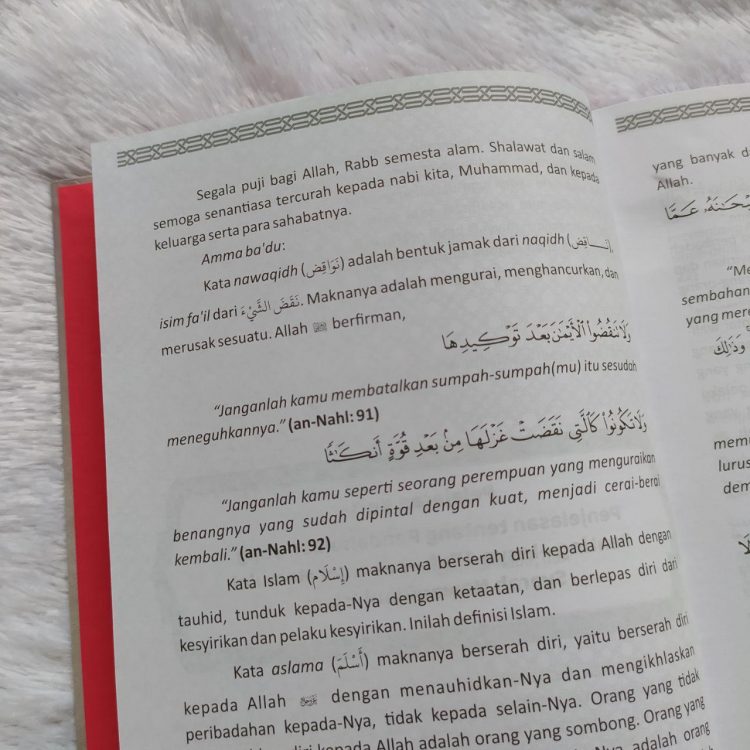 Segala puji bagi Allah, Rabb semesta alam. Shalawat dan salam
semoga senantiasa tercurah kepada nabi kita, Muhammad, dan kepada
keluarga serta para sahabatnya.
Amma ba'du:
Kata nawaqidh (نَوَاقِض) adalah bentuk jamak dari naqidh (نَـــاقِض),
isim fa'il dari نَقَضَ الشَّيْءَ. Maknanya adalah mengurai, menghancurkan, dan
merusak sesuatu. Allah ﷻ berfirman,
وَلَا تَنقُضُوا۟ ٱلْأَيْمَـٰنَ بَعْدَ تَوْكِيدِهَا
"Janganlah kamu membatalkan sumpah-sumpah(mu) itu sesudah
meneguhkannya." (an-Nahl: 91)
وَلَا تَكُونُوا۟ كَٱلَّتِى نَقَضَتْ غَزْلَهَا مِنۢ بَعْدِ قُوَّةٍ أَنكَـٰثًا
"Janganlah kamu seperti seorang perempuan yang menguraikan
benangnya yang sudah dipintal dengan kuat, menjadi cerai-berai
kembali." (an-Nahl: 92)
Kata Islam (إِسْلَام) maknanya berserah diri kepada Allah dengan
tauhid, tunduk kepada-Nya dengan ketaatan, dan berlepas diri dari
kesyirikan dan pelaku kesyirikan. Inilah definisi Islam.
Kata aslama (أَسْلَمَ) maknanya berserah diri, yaitu berserah diri
kepada Allah ﷻ dengan menauhidkan-Nya dan mengikhlaskan
peribadahan kepada-Nya, tidak kepada selain-Nya. Orang yang tidak
diri kepada Allah adalah orang yang sombong. Orang yang
adalah orang
yang banyak d
Allah.
عَمَّا
"Me
sembahan
yang mere
وَذَٰلِكَ
memu
lurus
dem